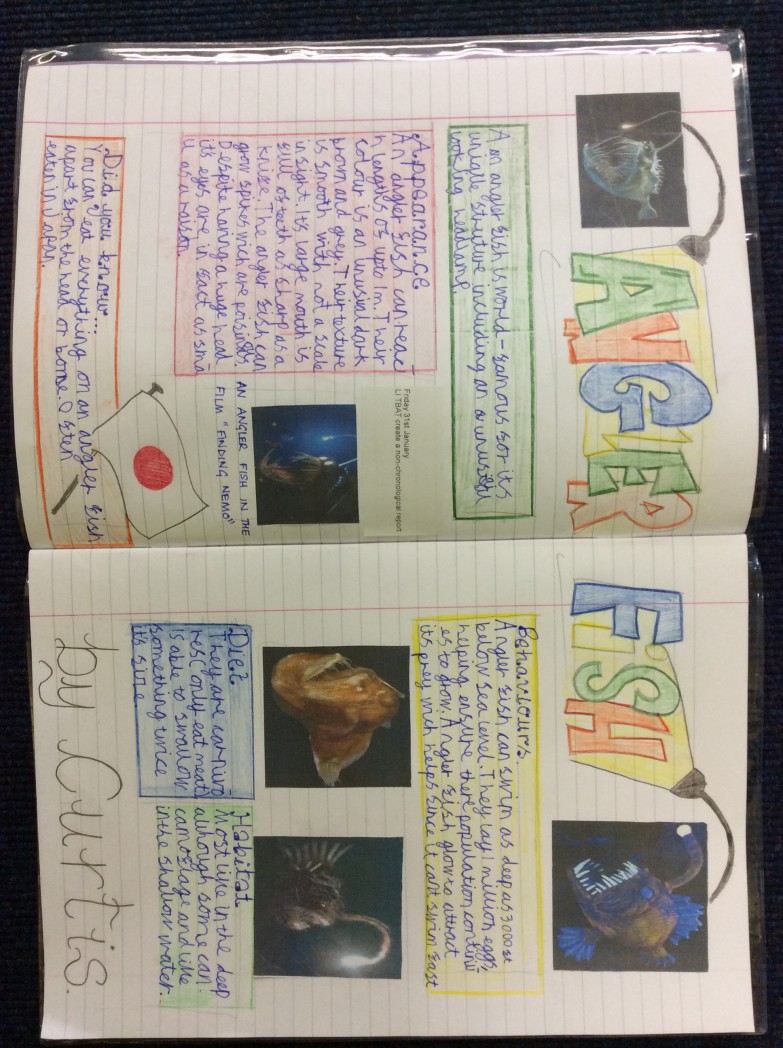 ANGLER
FISH
An angler fish is world-famous for its
unique structure including an unusual
looking headlamp.
Friday 31st January
LI TBAT create a non-chronological report
Appearance
An angler fish can reac-
h lengths of upto 1m. Their
colour is an unusual dark
brown and grey. Their texture
is smooth with not a scale
in sight. Its large mouth is
full of teeth as sharp as a
knife. The angler fish can
grow spikes wich are poisinis.
Despite having a huge head
its eyes are in fact as sma
ll as a raison.
AN ANGLER FISH IN THE
FILM "FINDING NEMO"
Did you know...
You can eat everything on an angler fish
apart from the head or bone. Often
eaten in Japan.
Behaviours
Angler fish can swim as deep as 3000ft
below sea level. They lay 1 million eggs,
helping ensure there population contini
es to grow. Angler fish glow to attract
its prey wich helps since it cant swim fast
Diet
They are carnivo
res (only eat meat)
Is able to swallow
something twice
it's size
Habitat
Most live in the deep
although some can
camoflage and live
in the shallow water.
by Curtis.